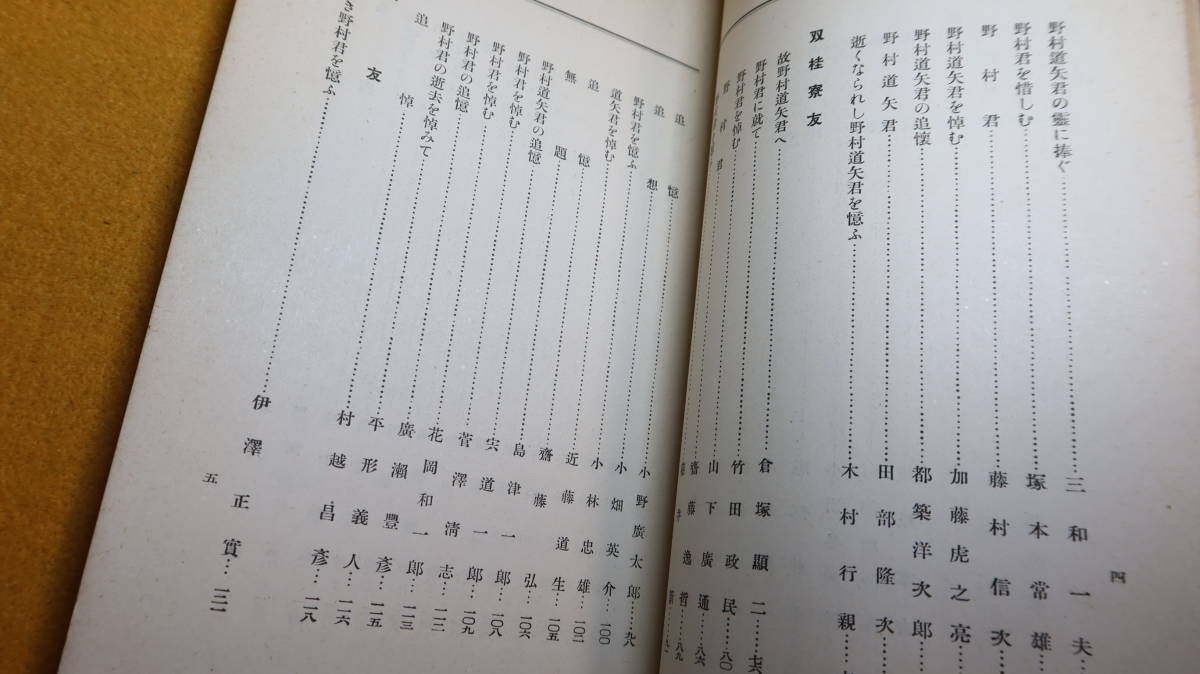 野村道矢君の靈に捧ぐ……三和一夫
野村君を惜しむ……塚本常雄…
野村君……藤村信次…
野村道矢君を悼む……加藤虎之亮…
野村道矢君の追懷……都築洋次郎…
野村道矢君……田部隆次…
逝くなられし野村道矢君を憶ふ……木村行親…
四
双桂寮友
故野村道矢君へ……倉塚顯二…七六
野村君に就て……竹田政民…八〇
野村君を悼む……山下廣通…八六
野村君……齋藤逸哲…八九
追憶
追想……小野廣太郎…九
野村君を憶ふ……小畑英介…一〇〇
道矢君を悼む……小林忠雄…一〇二
追憶……近藤道生…一〇五
無題……齋藤弘…一〇六
野村道矢君の追憶……島津一郎…一〇八
野村君を悼む……宍道一郎…一〇九
野村君を悼む……菅澤清志…一一二
野村君の追憶……花岡和一郎…一二三
野村君の逝去を悼みて……廣瀨豐彥…一二五
追悼……平形義人…一二六
村越昌彥…一二八
友
き野村君を憶ふ……伊澤正實…三一
五